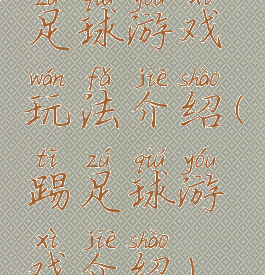 zú qiú yóu xì
足球游戏
wán fǎ jiè shào
玩法介绍(
tī zú qiú yóu
踢足球游
xì jiè shào
戏介绍)